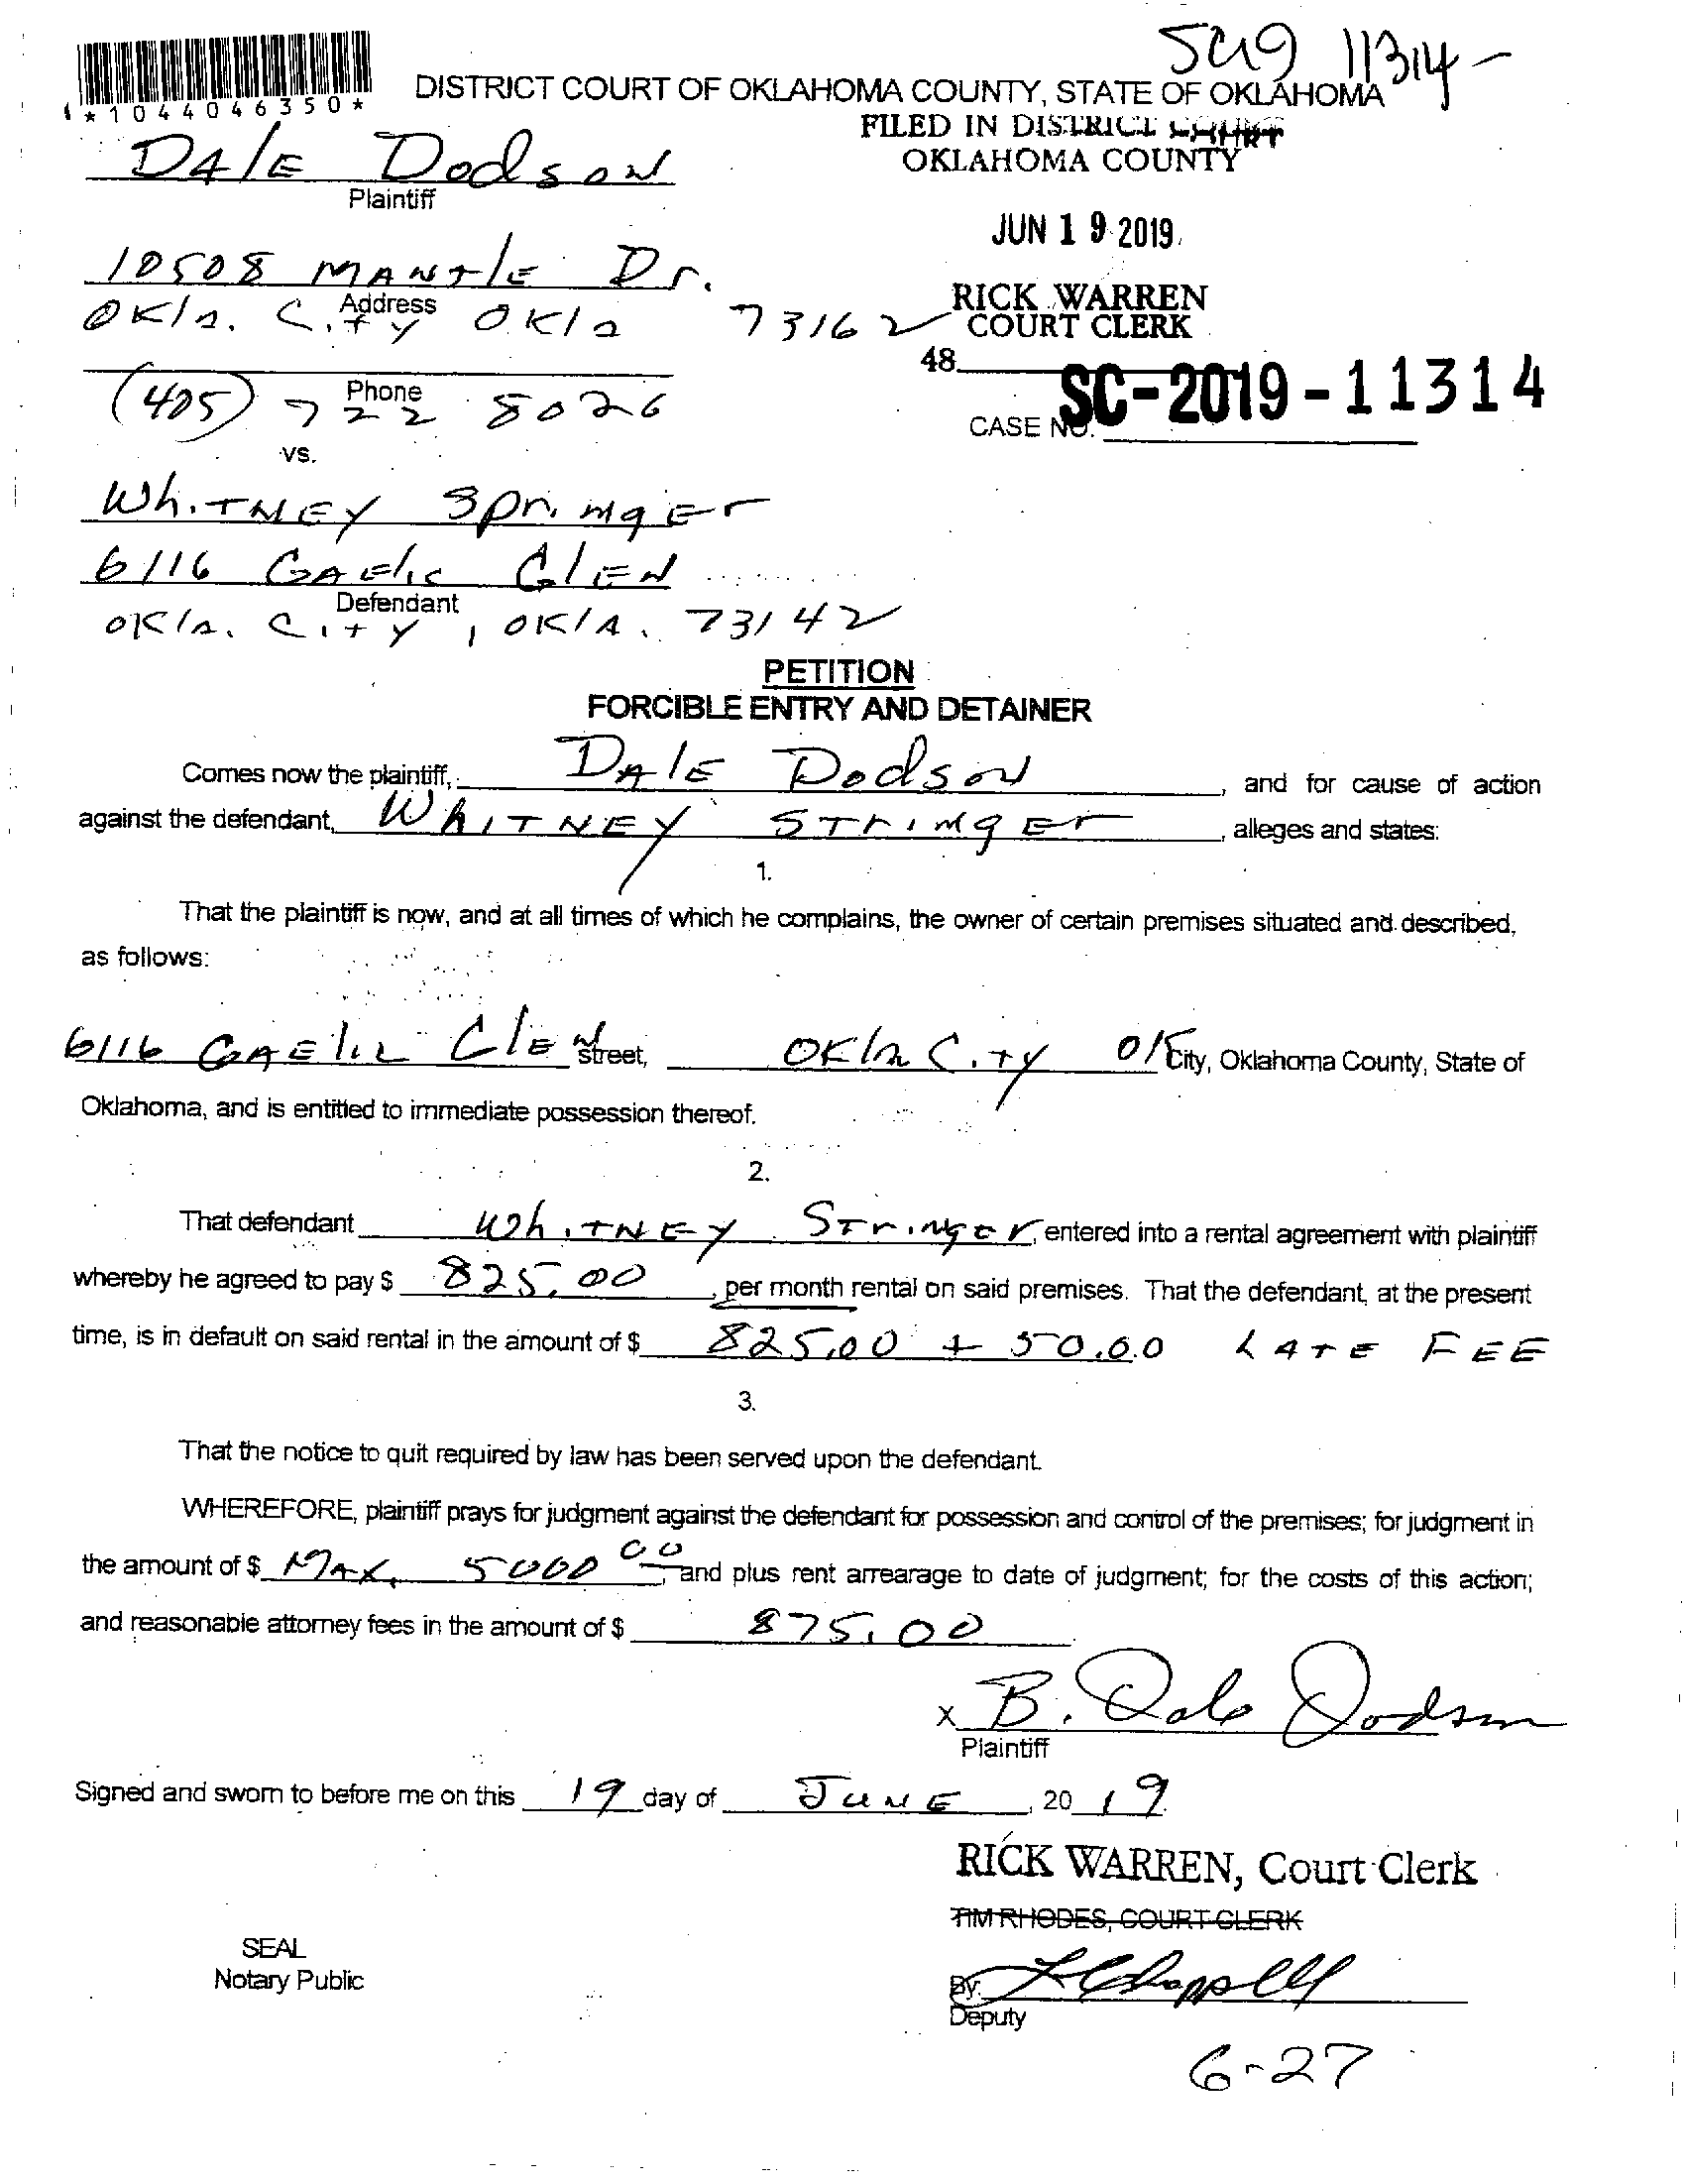 SC19 11314-
*1044046350*
DISTRICT COURT OF OKLAHOMA COUNTY, STATE OF OKLAHOMA
FILED IN DISTRICT COURT
OKLAHOMA COUNTY
DALE Dodson
Plaintiff
JUN 19 2019
10508 MANTLE Dr.
Address
Okla. City Okla 73162
RICK WARREN
COURT CLERK
48
Phone
(405) 722 8026
SC-2019-11314
CASE NO.
vs.
WhiTNEY Springer
6116 GAElic GlEN
Defendant
Okla. City, OklA. 73142
PETITION
FORCIBLE ENTRY AND DETAINER
Comes now the plaintiff, DAlE Dodson, and for cause of action
against the defendant, WhITNEY STringEr, alleges and states:
1.
That the plaintiff is now, and at all times of which he complains, the owner of certain premises situated and described,
as follows:
6116 GAElic GlEN Street, Okla City Ok City, Oklahoma County, State of
Oklahoma, and is entitled to immediate possession thereof.
2.
That defendant WhiTNEY STringer, entered into a rental agreement with plaintiff
whereby he agreed to pay $ 825.00, per month rental on said premises. That the defendant, at the present
time, is in default on said rental in the amount of $ 825.00 + 50.00 LATE FEE
3.
That the notice to quit required by law has been served upon the defendant.
WHEREFORE, plaintiff prays for judgment against the defendant for possession and control of the premises; for judgment in
the amount of $ MAX. 5000 00, and plus rent arrearage to date of judgment; for the costs of this action;
and reasonable attorney fees in the amount of $ 875.00
X B. Dale Dodson
Plaintiff
Signed and sworn to before me on this 19 day of JUNE, 20 19.
RICK WARREN, Court Clerk
TIM RHODES, COURT CLERK
SEAL
Notary Public
By:
Deputy
6-27